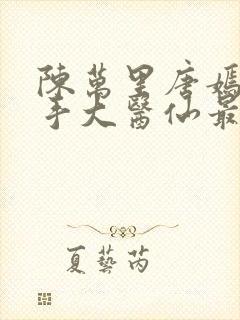 陳萬里唐嫣
手大醫仙最
夏藝芮